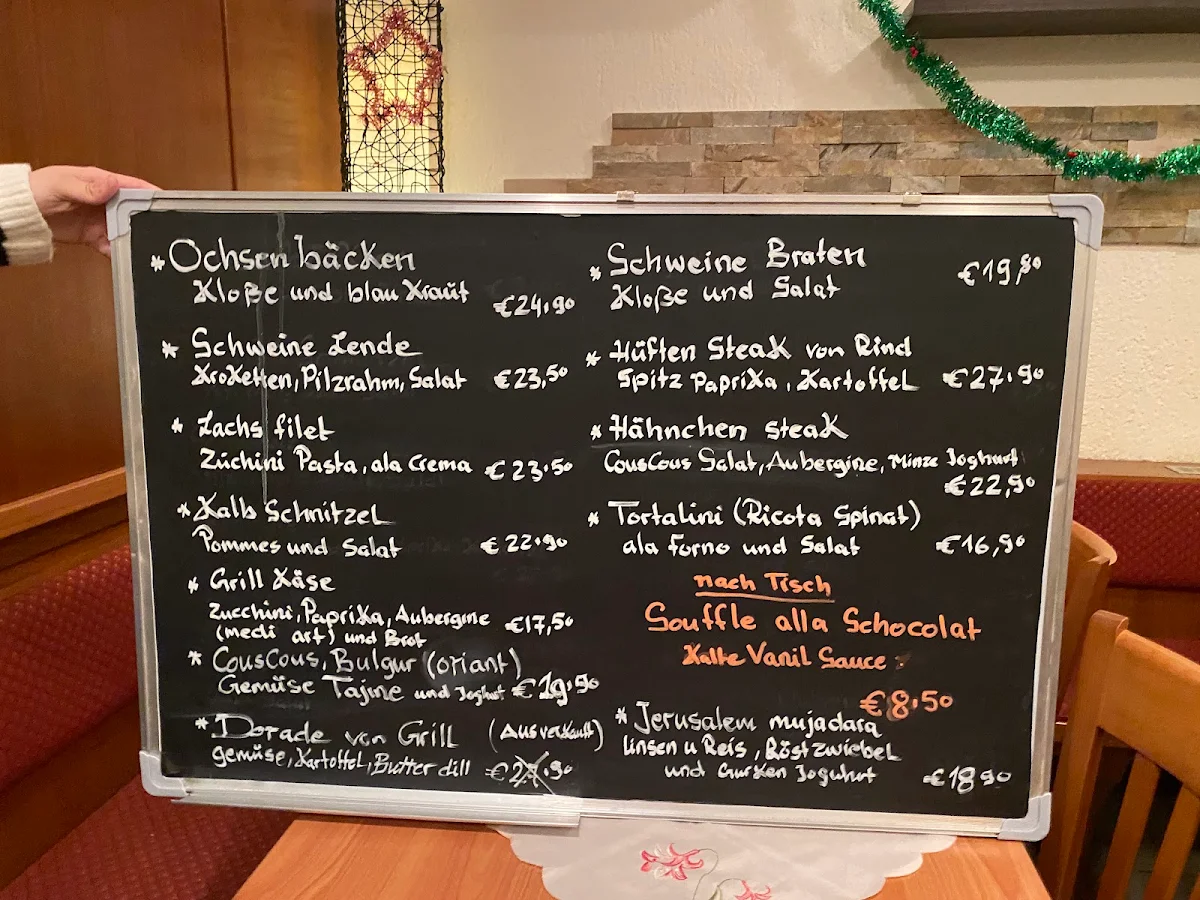 * Ochsenbäcken
Kloße und blau Kraut €24,90
* Schweine Lende
Kroketten, Pilzrahm, Salat €23,50
* Lachs filet
Züchini Pasta, ala Crema €23,50
* Kalb Schnitzel
Pommes und Salat €22,90
* Grill Käse
Zucchini, Paprika, Aubergine €17,50
(medi art) und Brot
* CousCous, Bulgur (oriant)
Gemüse Tajine und Joghut €19,90
* Dorade von Grill (Ausverkauft)
gemüse, Kartoffel, Butter dill
* Schweine Braten €19,80
Kloße und Salat
* Hüften Steak von Rind
Spitz Paprika, Kartoffel €27,90
* Hähnchen steak
CousCous Salat, Aubergine, Minze Joghurt
€22,90
* Tortalini (Ricota Spinat)
ala forno und Salat €16,90
nach Tisch
Souffle alla Schocolat
Kalte Vanil Sauce
€8,50
* Jerusalem mujadara
Linsen u Reis, Röstzwiebel
und Gurken Joguhrt €18,90